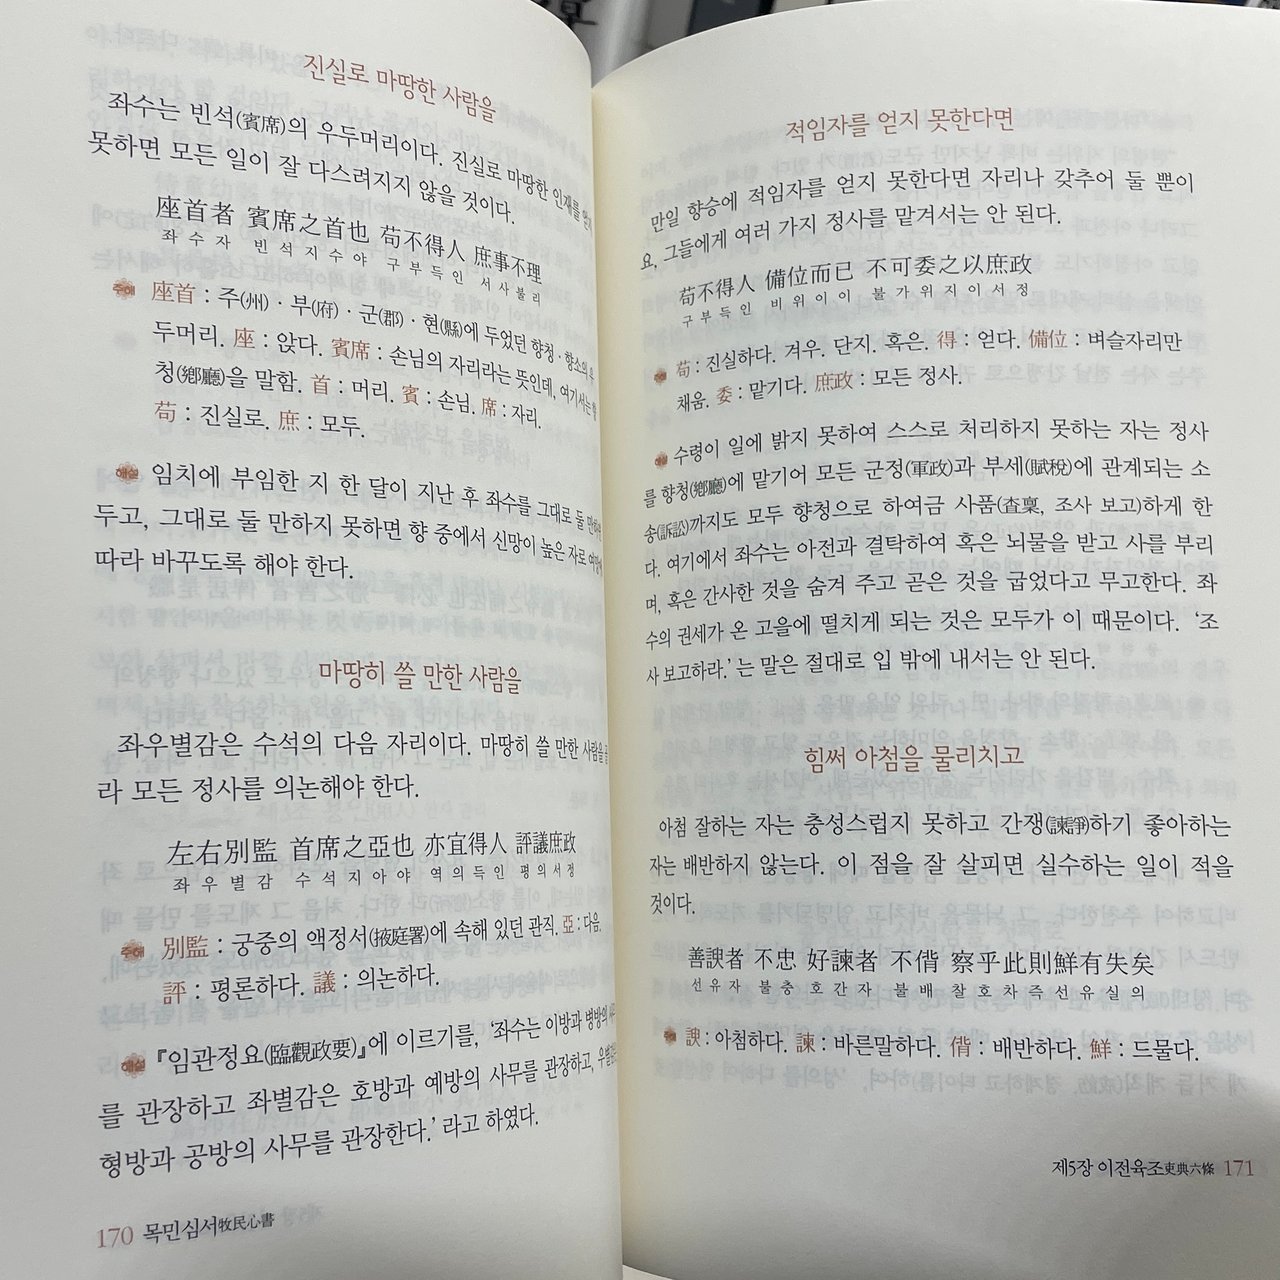 진실로 마땅한 사람을
좌수는 빈석(賓席)의 우두머리이다. 진실로 마땅한 인재를 얻지
못하면 모든 일이 잘 다스려지지 않을 것이다.
座首者 賓席之首也 苟不得人 庶事不理
좌수자 빈석지수야 구부득인 서사불리
주해 座首 : 주(州)·부(府)·군(郡)·현(縣)에 두었던 향청·향소의 우
두머리. 座 : 앉다. 賓席 : 손님의 자리라는 뜻인데, 여기서는 향
청(鄕廳)을 말함. 首 : 머리. 賓 : 손님. 席 : 자리.
苟 : 진실로. 庶 : 모두.
해설 임치에 부임한 지 한 달이 지난 후 좌수를 그대로 둘 만하면
두고, 그대로 둘 만하지 못하면 향 중에서 신망이 높은 자로
따라 바꾸도록 해야 한다.
마땅히 쓸 만한 사람을
좌우별감은 수석의 다음 자리이다. 마땅히 쓸 만한 사람을 골
라 모든 정사를 의논해야 한다.
左右別監 首席之亞也 亦宜得人 評議庶政
좌우별감 수석지아야 역의득인 평의서정
주해 別監 : 궁중의 액정서(掖庭署)에 속해 있던 관직. 亞 : 다음.
評 : 평론하다. 議 : 의논하다.
해설 『임관정요(臨觀政要)』에 이르기를, '좌수는 이방과 병방의
를 관장하고 좌별감은 호방과 예방의 사무를 관장하고, 우별감은
형방과 공방의 사무를 관장한다.'라고 하였다.
170 목민심서牧民心書
적임자를 얻지 못한다면
만일 향승에 적임자를 얻지 못한다면 자리나 갖추어 둘 뿐이
요, 그들에게 여러 가지 정사를 맡겨서는 안 된다.
苟不得人 備位而已 不可委之以庶政
구부득인 비위이이 불가위지이서정
주해 苟 : 진실하다. 겨우. 단지. 혹은. 得 : 얻다. 備位 : 벼슬자리만
채움. 委 : 맡기다. 庶政 : 모든 정사.
해설 수령이 일에 밝지 못하여 스스로 처리하지 못하는 자는 정사
를 향청(鄕廳)에 맡기어 모든 군정(軍政)과 부세(賦稅)에 관계되는 소
송(訴訟)까지도 모두 향청으로 하여금 사품(査稟, 조사 보고)하게 한
다. 여기에서 좌수는 아전과 결탁하여 혹은 뇌물을 받고 사를 부리
며, 혹은 간사한 것을 숨겨 주고 곧은 것을 굽었다고 무고한다. 좌
수의 권세가 온 고을에 떨치게 되는 것은 모두가 이 때문이다. '조
사 보고하라.'는 말은 절대로 입 밖에 내서는 안 된다.
힘써 아첨을 물리치고
아첨 잘하는 자는 충성스럽지 못하고 간쟁(諫諍)하기 좋아하는
자는 배반하지 않는다. 이 점을 잘 살피면 실수하는 일이 적을
것이다.
善諛者 不忠 好諫者 不偝 察乎此則鮮有失矣
선유자 불충 호간자 불배 찰호차즉선유실의
주해 諛 : 아첨하다. 諫 : 바른말하다. 偝 : 배반하다. 鮮 : 드물다.
제5장 이전육조吏典六條 171